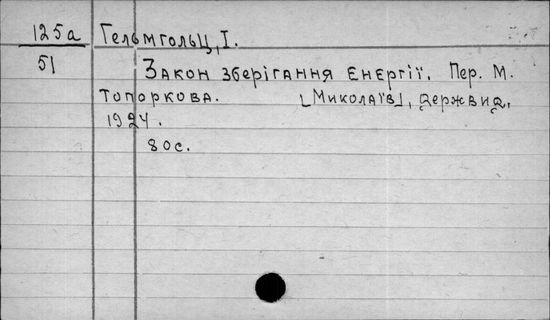 125а Гельмгольц, І.
51
Закон зберігання енергії. Пер. М.
Топоркова. [Миколаїв], держвид,
1924.
80с.